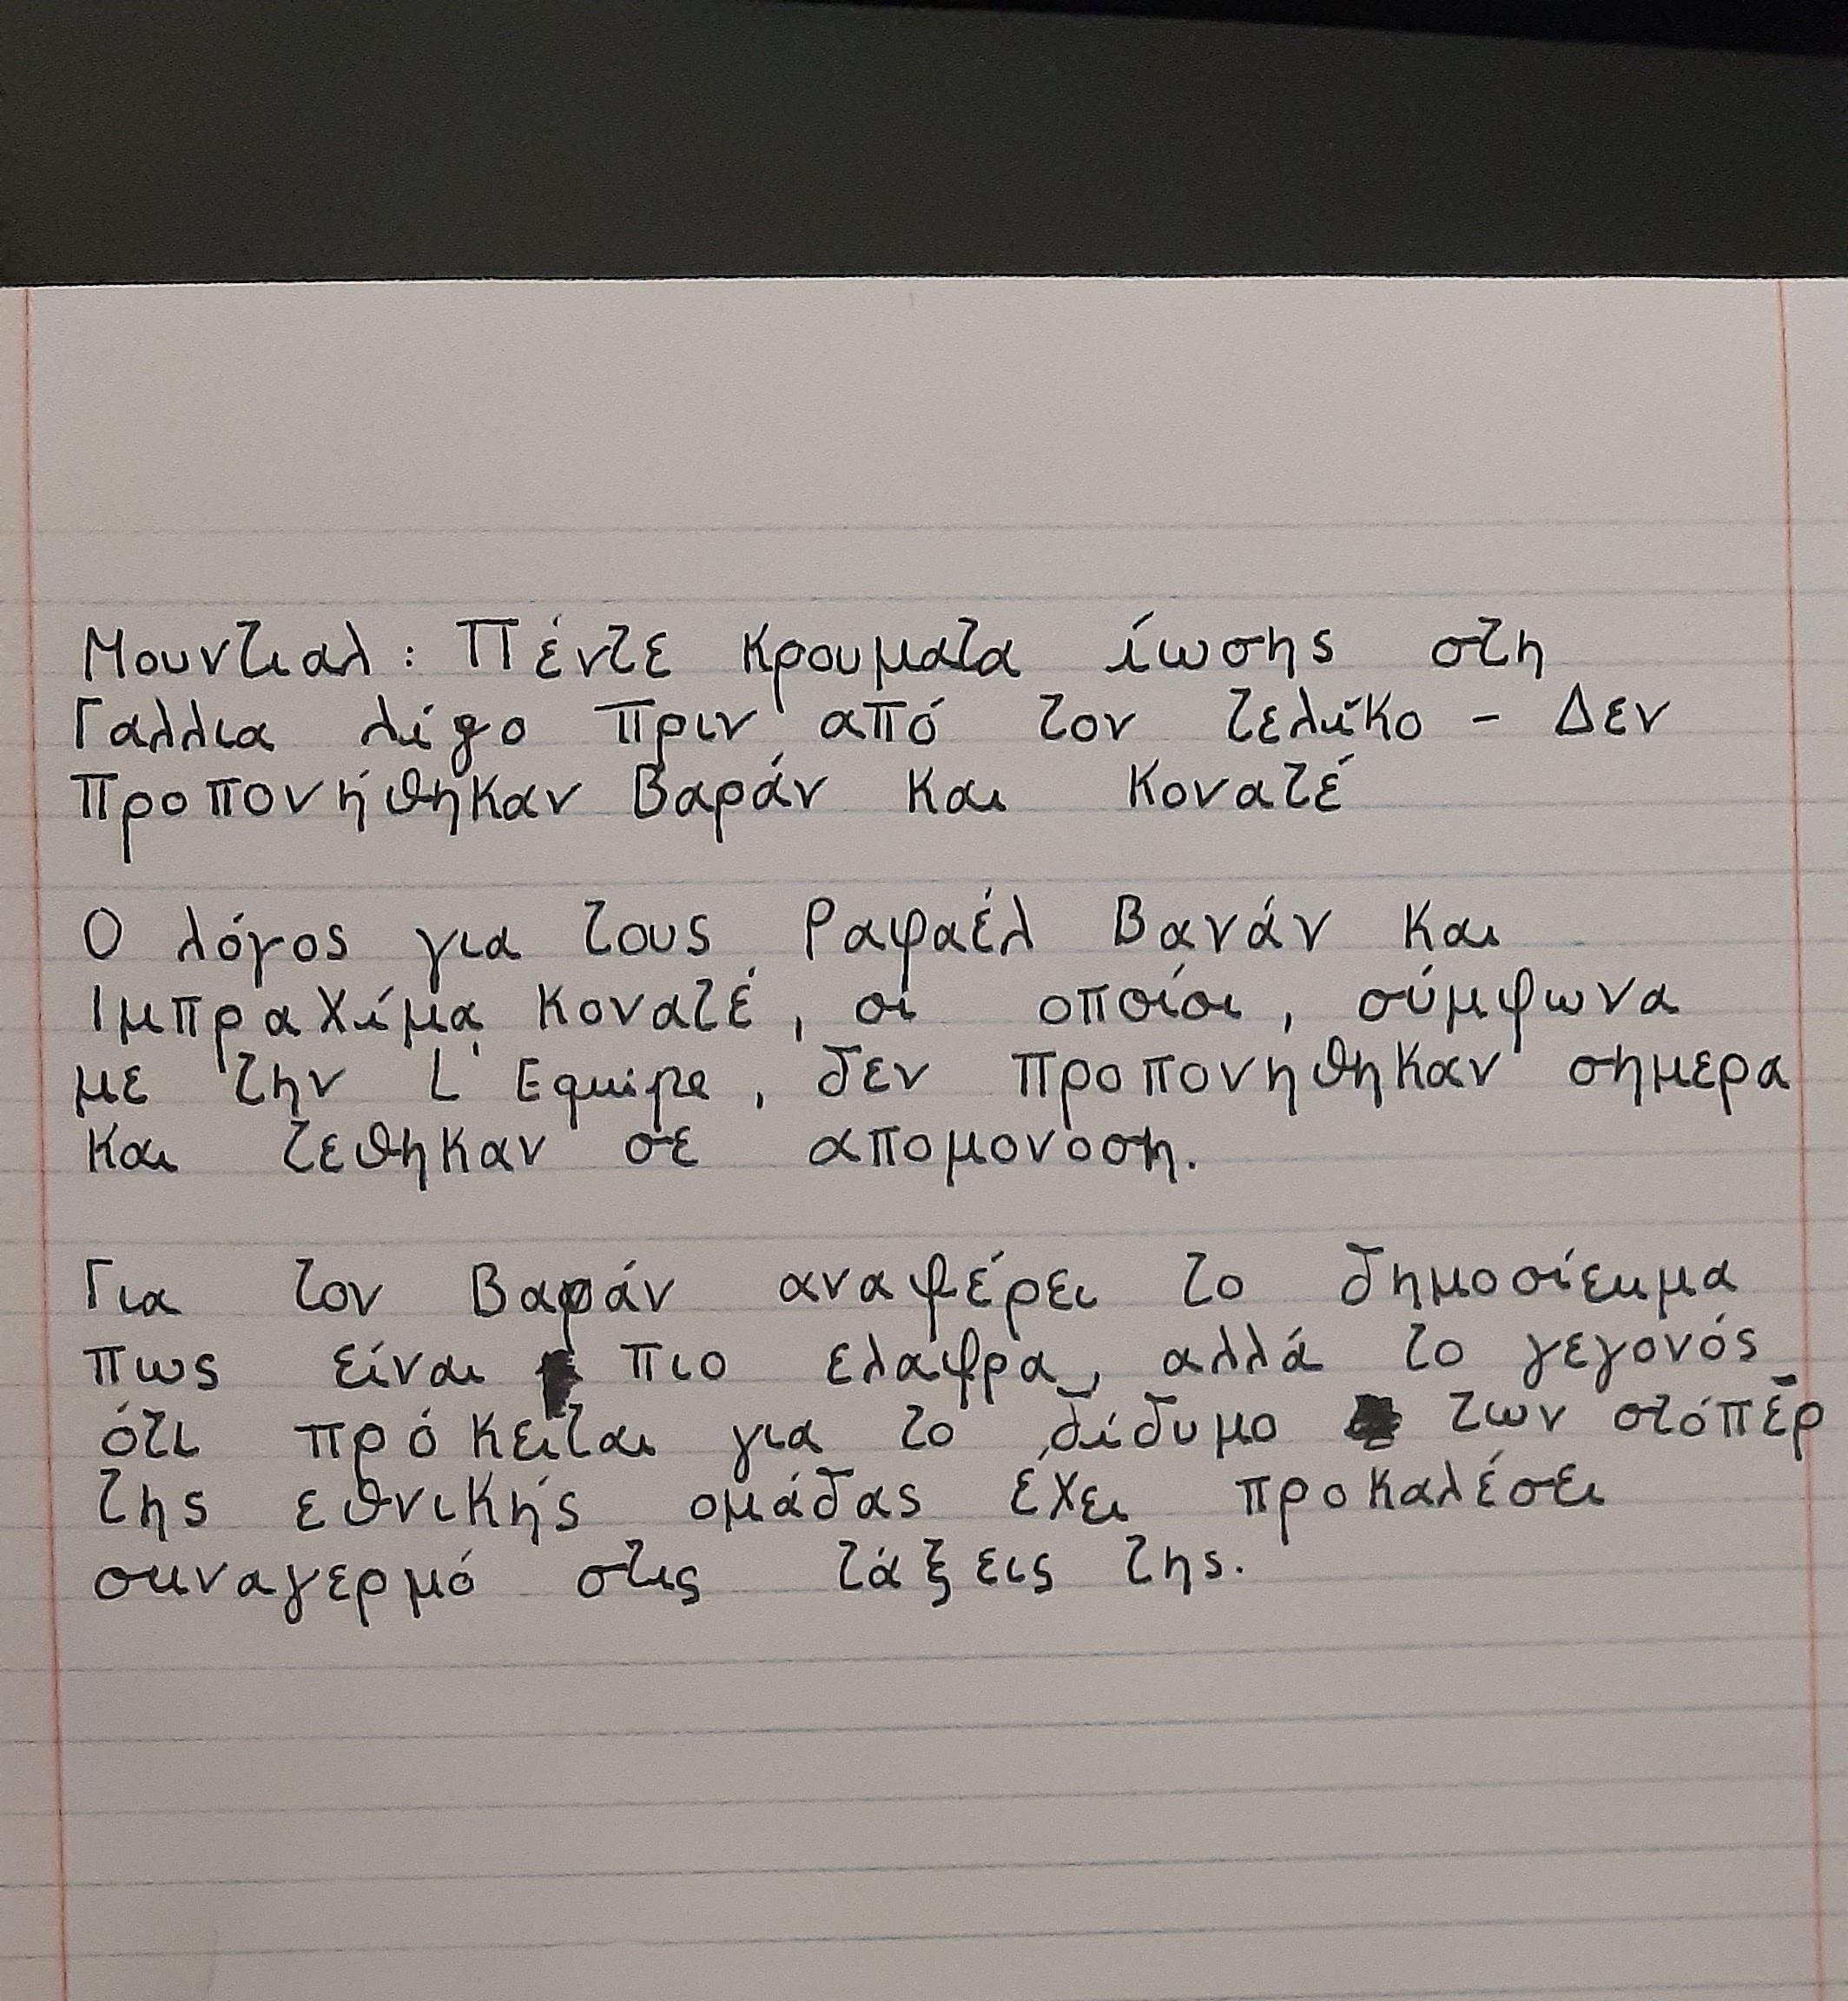 Μουντιαλ: Πέντε κρουματα ίωσης στη
Γαλλια λίγο πριν από τον τελικο - Δεν
προπονήθηκαν Βαράν και Κονατέ
Ο λόγος για τους Ραφαέλ Βανάν και
Ιμπραχίμα Κονατέ, οι οποίοι, σύμφωνα
με την L'Equipe, δεν προπονηθηκαν σημερα
και τεθηκαν σε απομονοση.
Για τον Βαράν αναφέρει το δημοσίευμα
πως είναι πιο ελαφρα, αλλά το γεγονός
ότι πρόκειται για το δίδυμο των στόπερ
της εθνικής ομάδας έχει προκαλέσει
συναγερμό στις τάξεις της.